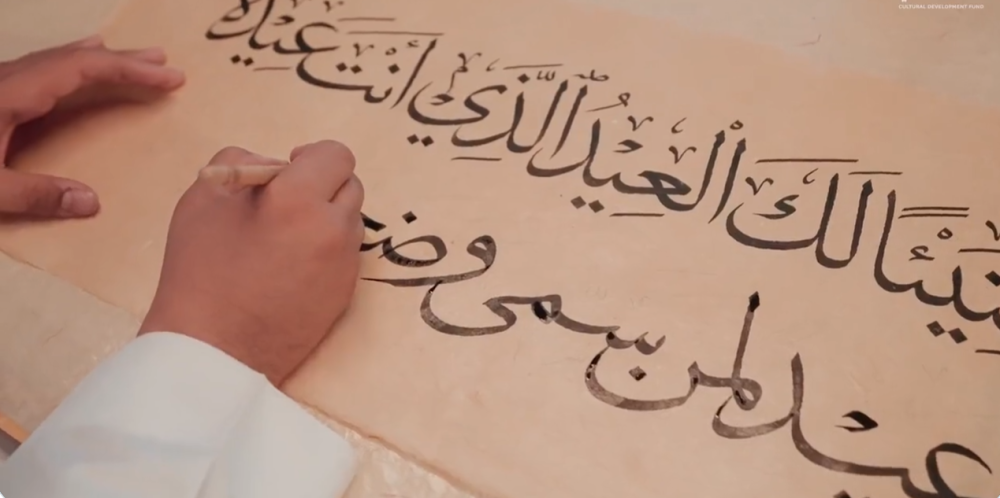 CULTURAL DEVELOPMENT FUND
ـنِيْئًا لَكَ الْعِيْدُ الَّذِي أَنْتَ عِيْدُهُ
عيد لمن سمى وضحـ